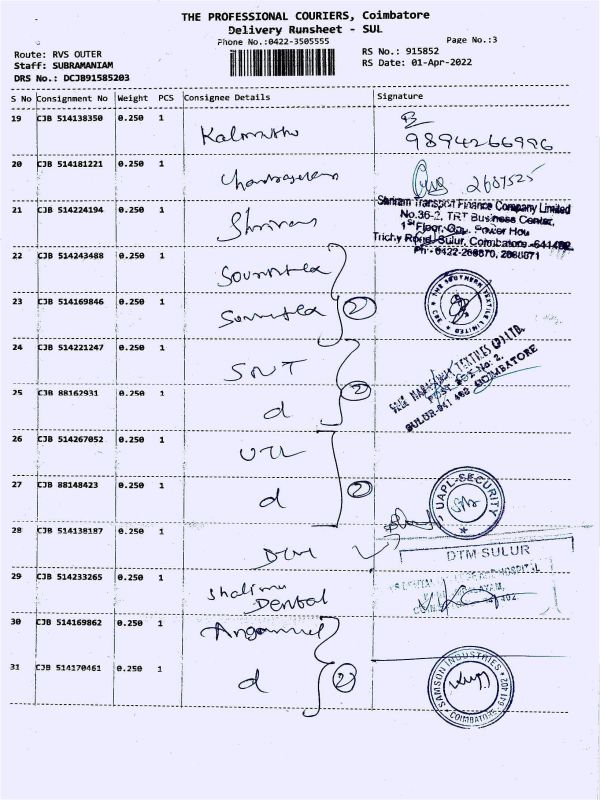 THE PROFESSIONAL COURIERS, Coimbatore
Delivery Runsheet - SUL
Phone No.:0422-3505555
Page No.:3
Route: RVS OUTER
RS No.: 915852
Staff: SUBRAMANIAM
RS Date: 01-Apr-2022
DRS No.: DCJB91585203
S No Consignment No Weight PCS Consignee Details Signature
19 CJB 514138350 0.250 1
9894266996
20 CJB 514181221 0.250 1
2687525
21 CJB 514224194 0.250 1 Shriram
Shriram Transport Finance Company Limited
No.36-2, TRT Business Center,
1st Floor, Opp. Power Hou
Trichy Road, Sulur, Coimbatore -641402
22 CJB 514243488 0.250 1
23 CJB 514169846 0.250 1 2
THE SOUTHERN TEXTILE LIMITED
24 CJB 514221247 0.250 1 SNT
TEXTILES (P) LTD.
POST BOX No: 2,
SULUR-641 402 COIMBATORE
25 CJB 88162931 0.250 1 d 2
26 CJB 514267052 0.250 1 UTL
27 CJB 88148423 0.250 1 d 2
UAPL-SECURITY
28 CJB 514138187 0.250 1 DTM
DTM SULUR
29 CJB 514233265 0.250 1
Dental
30 CJB 514169862 0.250 1
31 CJB 514170461 0.250 1 d 2
SAMSON INDUSTRIES
COIMBATORE 641 402